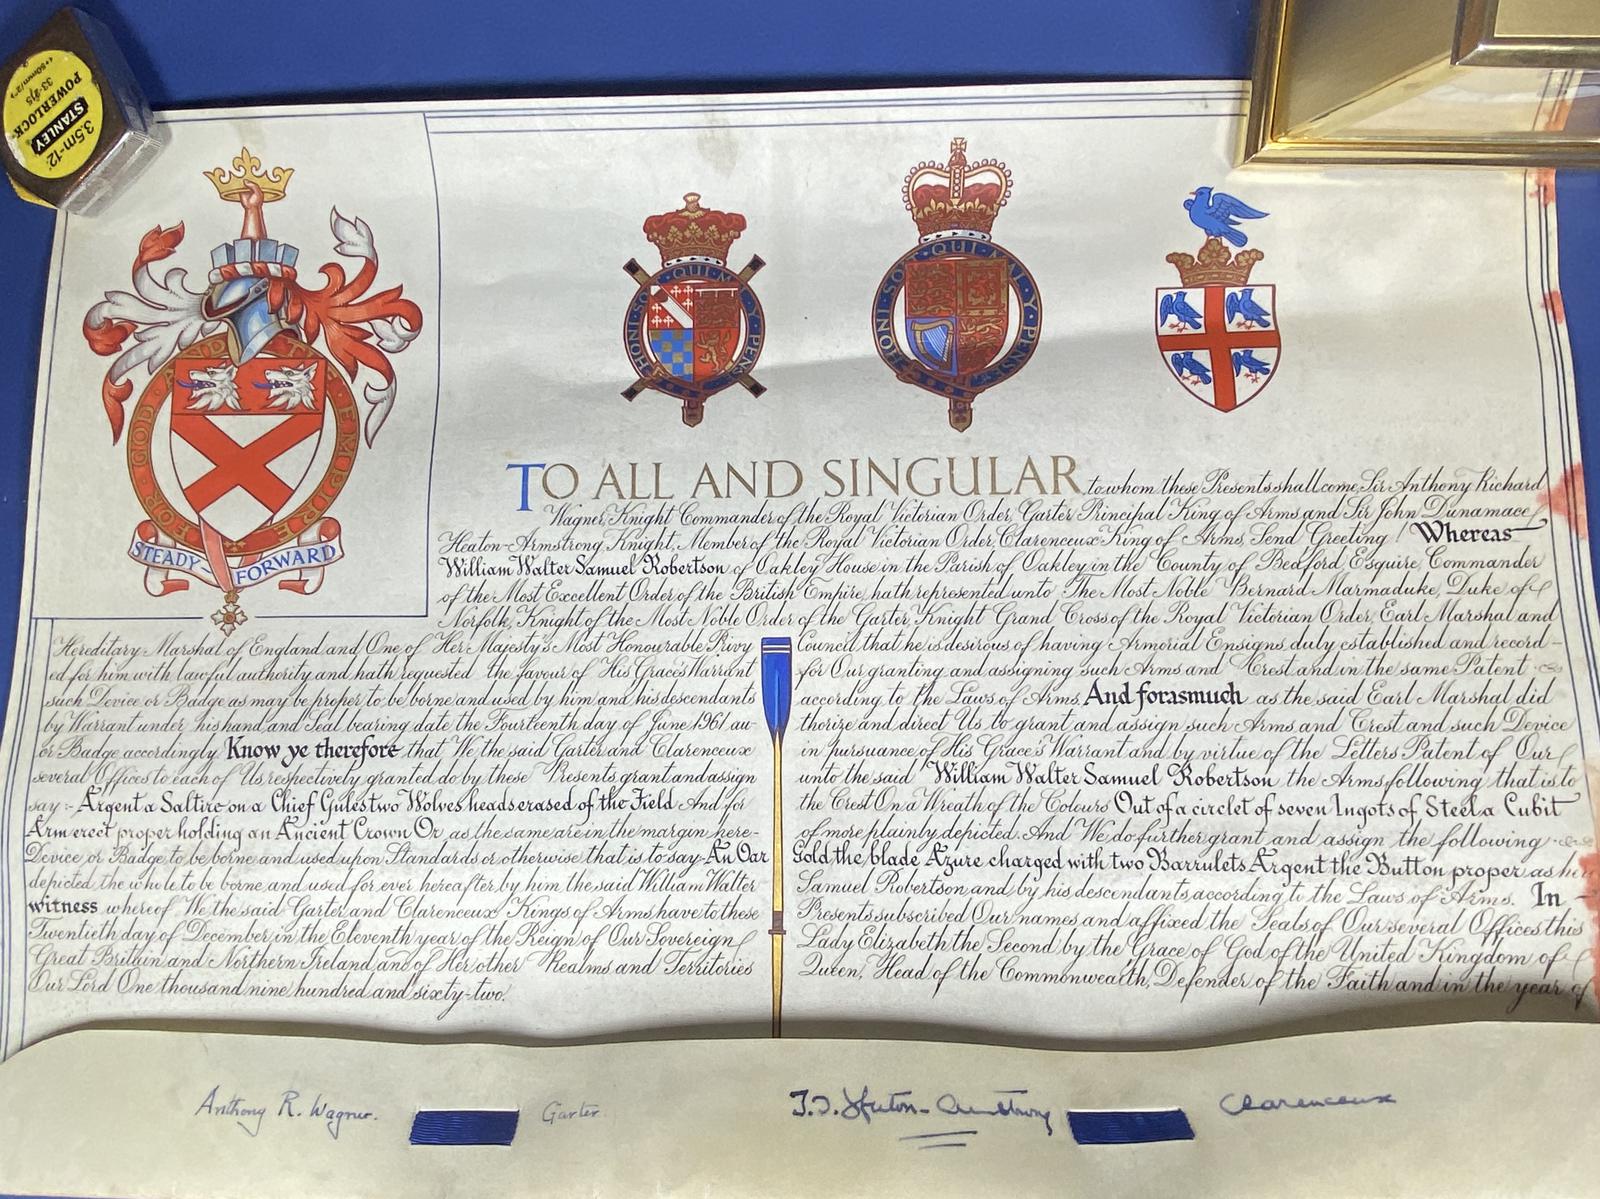 3.5m-12'
STANLEY
POWERLOCK
33-215
FOR GOD AND THE EMPIRE
STEADY FORWARD
HONI SOI QUI MAL Y PENSE
HONI SOI QUI MAL Y PENSE
TO ALL AND SINGULAR to whom these Presents shall come Sir Anthony Richard
Wagner, Knight Commander of the Royal Victorian Order, Garter Principal King of Arms and Sir John Dunamace
Heaton-Armstrong, Knight, Member of the Royal Victorian Order, Clarenceux King of Arms, Send Greeting! Whereas
William Walter Samuel Robertson of Oakley House in the Parish of Oakley in the County of Bedford Esquire, Commander
of the Most Excellent Order of the British Empire, hath represented unto The Most Noble Bernard Marmaduke, Duke of
Norfolk, Knight of the Most Noble Order of the Garter, Knight Grand Cross of the Royal Victorian Order, Earl Marshal and
Hereditary Marshal of England and One of Her Majesty's Most Honourable Privy Council that he is desirous of having Armorial Ensigns duly established and record-
ed for him with lawful authority and hath requested the favour of His Grace's Warrant for Our granting and assigning such Arms and Crest and in the same Patent
such Device or Badge as may be proper to be borne and used by him and his descendants according to the Laws of Arms. And forasmuch as the said Earl Marshal did
by Warrant under his hand and Seal bearing date the Fourteenth day of June 1961 au- thorize and direct Us to grant and assign such Arms and Crest and such Device
or Badge accordingly Know ye therefore that We the said Garter and Clarenceux in pursuance of His Grace's Warrant and by virtue of the Letters Patent of Our
several Offices to each of Us respectively granted do by these Presents grant and assign unto the said William Walter Samuel Robertson the Arms following that is to
say :- Argent a Saltire on a Chief Gules two Wolves heads erased of the Field And for the Crest On a Wreath of the Colours Out of a circlet of seven Ingots of Steel a Cubit
Arm erect proper holding an Ancient Crown Or as the same are in the margin here- of more plainly depicted. And We do further grant and assign the following
Device or Badge to be borne and used upon Standards or otherwise that is to say An Oar Gold the blade Azure charged with two Barrulets Argent the Button proper as here
depicted the whole to be borne and used for ever hereafter by him the said William Walter Samuel Robertson and by his descendants according to the Laws of Arms. In
witness whereof We the said Garter and Clarenceux Kings of Arms have to these Presents subscribed Our names and affixed the Seals of Our several Offices this
Twentieth day of December in the Eleventh year of the Reign of Our Sovereign Lady Elizabeth the Second by the Grace of God of the United Kingdom of
Great Britain and Northern Ireland and of Her other Realms and Territories Queen, Head of the Commonwealth, Defender of the Faith and in the year of
Our Lord One thousand nine hundred and sixty-two.
Anthony R. Wagner. Garter
J.D. Heaton-Armstrong Clarenceux